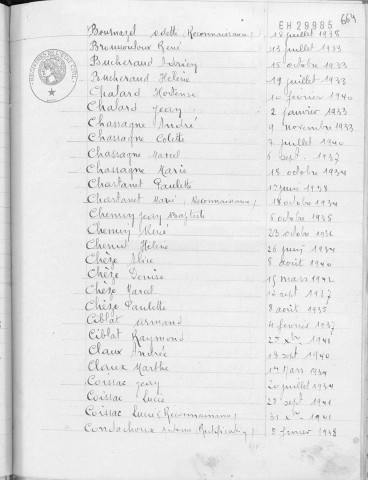 EH 29985
664
Bournazel Odette (Reconnaissance) 18 juillet 1938
René 13 juillet 1933
Bucheraud Adrien 15 octobre 1933
Bucheraud Hélène 19 juillet 1933
Chalard Hortense 10 février 1940
Chalard Jean 2 janvier 1933
Chassagne André 9 novembre 1933
Chassagne Colette 7 juillet 1940
Chassagne Marcel 6 sept. 1937
Chassagne Marie 18 octobre 1934
Chastanet Paulette 1938
Chastanet René (Reconnaissance) 18 octobre 1934
Jean Baptiste 5 octobre 1935
René 23 octobre
Hélène 26 juin 1934
Chèze Alice 8 août 1940
Chèze Denise 15 mars 1942
Chèze Marcel 12 sept 1937
Chèze Paulette 8 août 1935
Ciblat Germaine 4 février 1937
Ciblat Raymond 1940
Claux Andrée 18 sept 1940
Claux Marthe 14 Mars 1934
Coissac Jean 20 juillet 1934
Coissac Lucie 28 sept 1941
Coissac Lucie (Reconnaissance) 31 Xbre 1941
(Rectification) 5 février 1938